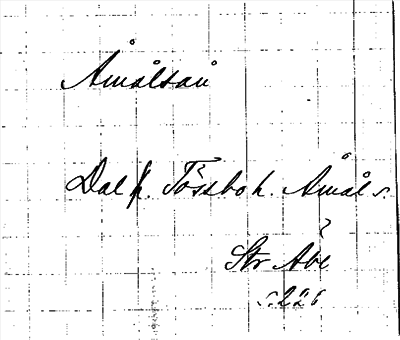 Åmålsån
Dalsl. Tössbo h. Åmål s.
?
Str Åbe
s. 226